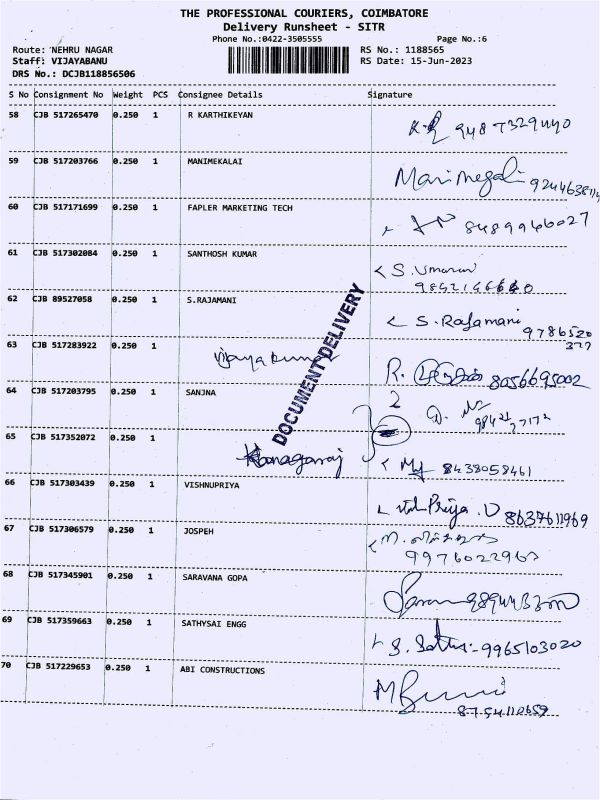 THE PROFESSIONAL COURIERS, COIMBATORE
Delivery Runsheet - SITR
Phone No.:0422-3505555 Page No.:6
Route: NEHRU NAGAR RS No.: 1188565
Staff: VIJAYABANU RS Date: 15-Jun-2023
DRS No.: DCJB118856506
S No Consignment No Weight PCS Consignee Details Signature
58 CJB 517265470 0.250 1 R KARTHIKEYAN
59 CJB 517203766 0.250 1 MANIMEKALAI
60 CJB 517171699 0.250 1 FAPLER MARKETING TECH
8489946027
61 CJB 517302084 0.250 1 SANTHOSH KUMAR
62 CJB 89527058 0.250 1 S.RAJAMANI
S. Rajamani
9786520
377
63 CJB 517283922 0.250 1 Vijayakumar
R. 8056695002
DOCUMENT DELIVERY
64 CJB 517203795 0.250 1 SANJNA
2
65 CJB 517352072 0.250 1 Kanagaraj
8438058461
66 CJB 517303439 0.250 1 VISHNUPRIYA
8637611969
67 CJB 517306579 0.250 1 JOSPEH
68 CJB 517345901 0.250 1 SARAVANA GOPA
69 CJB 517359663 0.250 1 SATHYSAI ENGG
9965103020
70 CJB 517229653 0.250 1 ABI CONSTRUCTIONS
8754110659